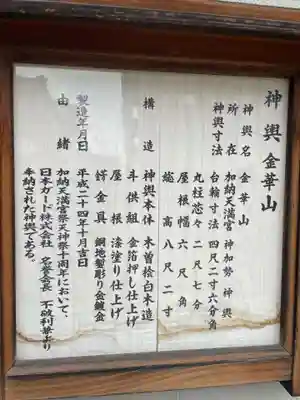 神輿 金華山
神輿名 金華山
所在 加納天満宮 神加勢 神輿
神輿寸法 台輪寸法 四尺二寸六分角
丸柱芯々 二尺七分
屋根幅 六尺角
総高 八尺二寸
構造 神輿本体 木曽桧白木造
斗供組 金箔押し仕上げ
屋根 漆塗り仕上げ
錺金具 銅地製彫り金鍍金
製造年月日 平成二十四年十月吉日
由緒 加納天満宮祭天神祭十周年において、
日本カード株式会社 名誉会長 不破利 より
奉納された神輿である。